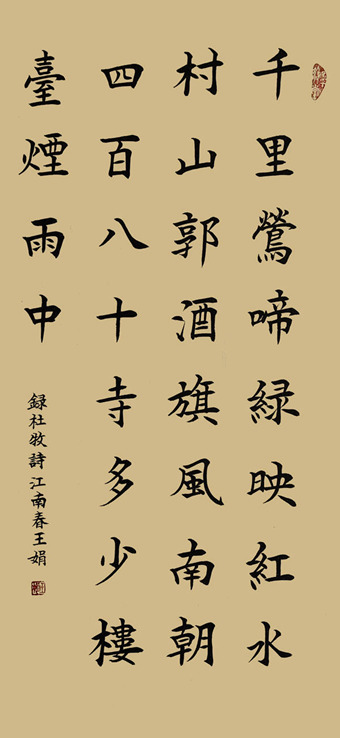 千里鶯啼緑映紅水
村山郭酒旗風南朝
四百八十寺多少樓
臺煙雨中
録杜牧詩江南春王娟